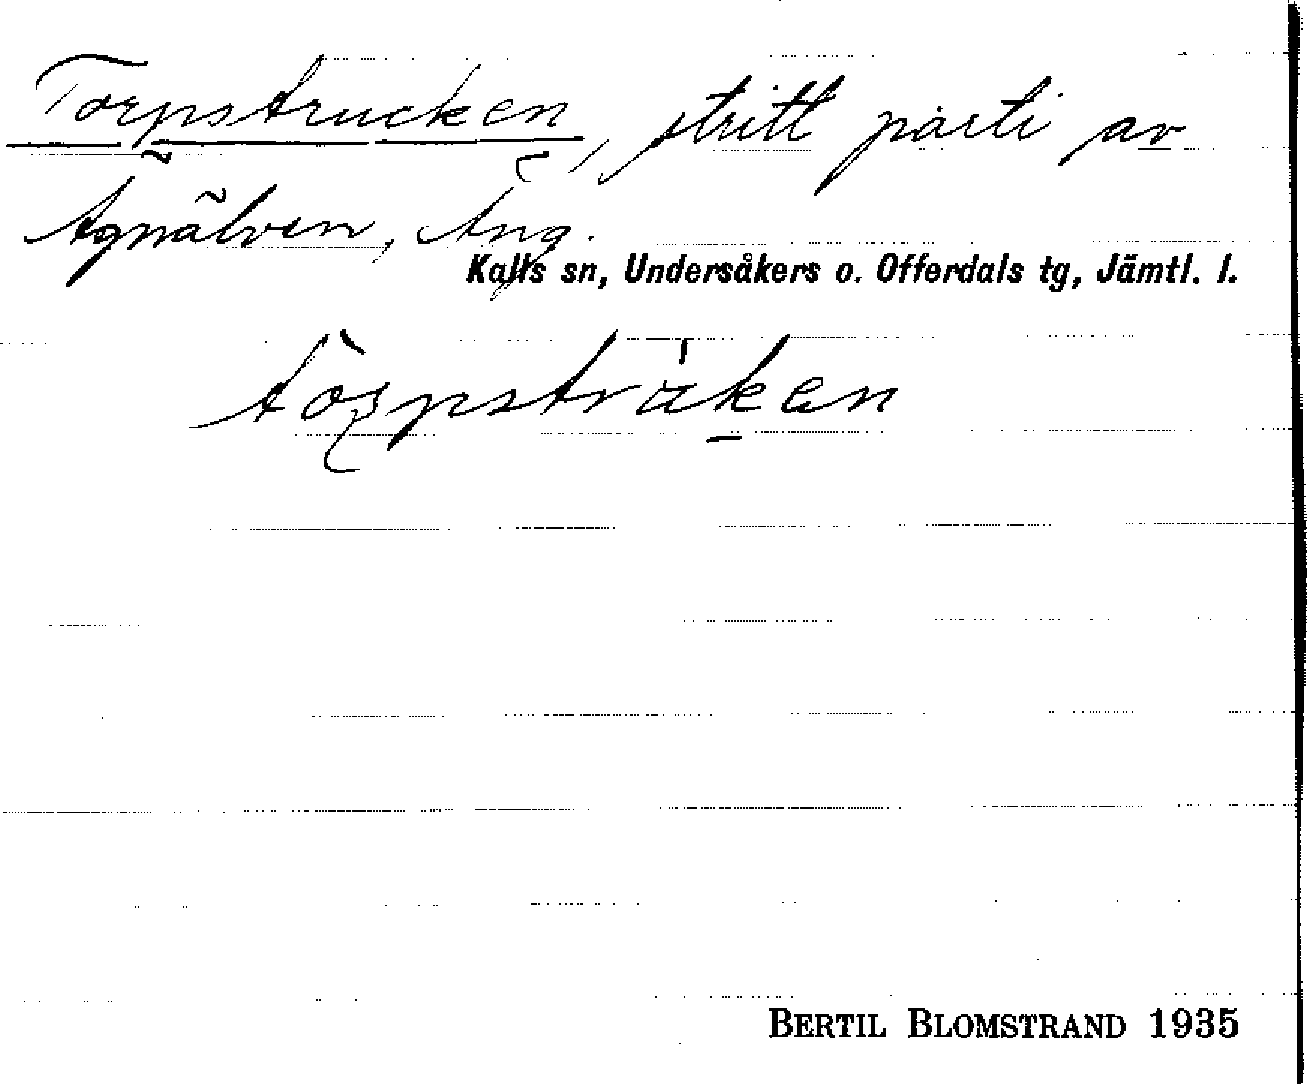 Torpstrucken, stritt parti av
Ägnälven, Äng.
Kalls sn, Undersåkers o. Offerdals tg, Jämtl. l.
tòrpsträken
BERTIL BLOMSTRAND 1935